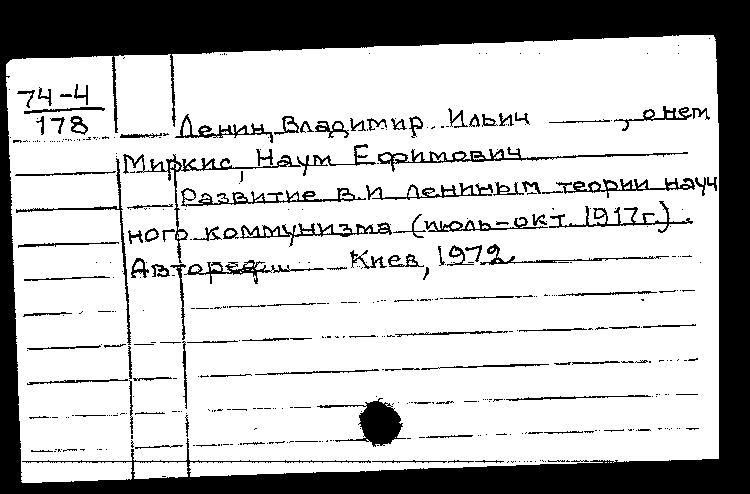 74-4
178
Ленин, Владимир Ильич ——, о нем
Миркис, Наум Ефимович
Развитие В.И Лениным теории науч
ного коммунизма (июль-окт. 1917г.).
Автореф... Киев, 1972.